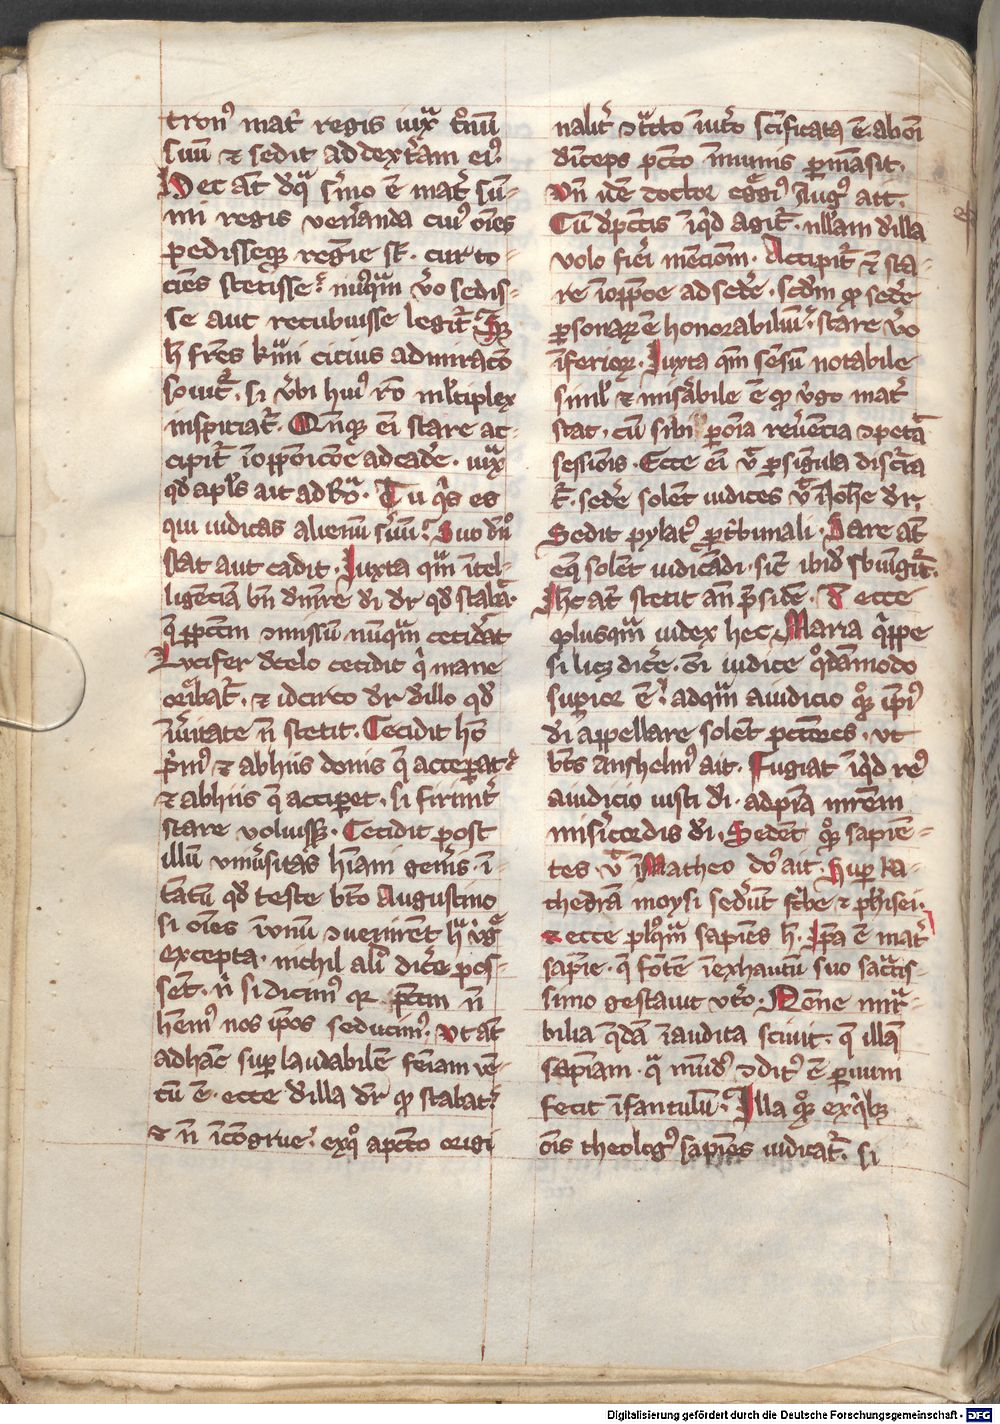 tron᷒ mat̄ regis iux̄ t̄nū
suū ⁊ sedit ad dext̄am ei᷒.
Hec aūt d̄ q̄ s̄mo ē mat̄ sū-
mi regis ven̄anda cui᷒ oēs
pedisseq̄ regīe st̄. cur to-
ciēs stetisse. nūq̄m v̄o sedis-
se aut recubuisse legit̄
h̄ fr̄es k̄mi cicius admiracō
soluit̄. si v̄bi hui᷒ rō ml̄tiplex
inspiciat̄. Qn̄q̄ ei̅ stare ac-
cipit̄ ad cade̅. iux̄
qd̄ apl̄s ait ad Ro̅. Tu q̄s es
qui iudicas alienū s̄uū. Suo dn̄o
stat aut cadit. Iuxta q̄m ītel-
ligēciā bn̄ d̄ di dr̄ qd̄ stabat.
q̄ p̄ctm̄ missū nūq̄m cecid̄at
Lucifer de celo cecidit q̄ mane
orieba̅t. ⁊ idcirco dr̄ d̄ illo qd̄
ī v̄itate n̄ stetit. Cecidit hō
p̄m᷒ ⁊ ab hiis donis q̄ accep̄at.
⁊ ab hiis q̄ accip̄et. si firmit̄
stare voluiss̄. Cecidit post
illū vniu̅sitas hūani gen̄is ī-
tantū qd̄ teste bt̄o Augustino
si oēs ī vnū ↄuenirēt h̄ v̄g̅
excepta. nichil ali᷒ dic̄e pos-
sēt. n̄ si dicim᷒ qr p̄ctm̄ n̄
hēm᷒ nos ip̄os seducim᷒. Vt aūt
ad hāc sup̄ laudabilē feīam vē-
tū ē. ecce d̄ illa dr̄ q̄ stabat.
⁊ n̄ īcōgrue. ex q̊ a p̄cto origi
nalit̄ ī vt̄o sc̄ificata ē. ab om̄i
d̄iceps p̄cto īmunis p̄māsit.
Vn̄ idē doctor eg̅gi᷒ Aug᷒ ait.
Cū d̄ p̄ctis īq̄d agit̄. nll̄am d̄ illa
volo fi̅ri mēciom̄. Accipit̄ ē sta-
re ad sede̅. sed̄m q̄ sede̅
p̄sonar̄ ē honorabiliū. stare v̄o
īferior̄. Iuxta q̄m sēsū notabile
simil̄ ⁊ mis̄abile ē q̄ v̄go mat̄
stat. cū sibi p̄ om̄ia reu̅encia ↄpetat̄
sessionis. Ecce ei̅ v̄ p̄ singula disc̄ra
t̄. sede̅ solēt iudices v̄ ī Ioh̄e dr̄.
Sedit pylat᷒ p̄ t̄bunali. Stare aūt
eq̄ solēt iudicādi. sic̄ ibid̄ sbiūgit̄.
Ihc aūt stetit an̄ p̄sidē. S̄ ecce
plusq̄m iudex hec Maria q̄ppe
si licꝫ dic̄e. om̄i iudice q̊dāmodo
sup̄ior ē. ad q̄m a iudicio q̊q̄ ip̄i᷒
d̄i appellare solēt p̄ctores. vt
bt̄s Anshelm᷒ ait. Fugiat īq̄d re᷒
a iudicio iusti d̄i. ad piā mr̄em
mis̄icordis d̄i. Sedēt q̊q̄ sapiē-
tes v̄ ī Matheo d̄o ait. Sup̄ ka-
thedrā moysi sed̄ūt sc̄be ⁊ ph̄isei.
⁊ ecce pl᷒q̄m sapiēs h̄. Ip̄a ē mat̄
sap̄ie. q̄ fōtē īexhaustū suo sac̄tis-
simo gestauit vt̄o. Nōne mir̄a-
bilia q̄dā īaudita sciuit. q̄ illā
sap̄iam. q̄ mūd᷒ ↄdit᷒ ē p̄uum
fecit īfantulū. Illa q̊q̄ ex q̄b᷒
oīs theolog᷒ sapiēs iudicat̄. si